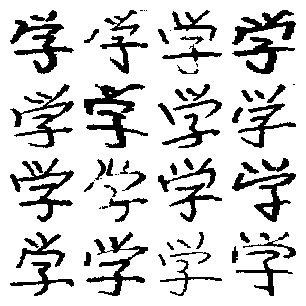 学学学学
学学学学
学学学学
学学学学